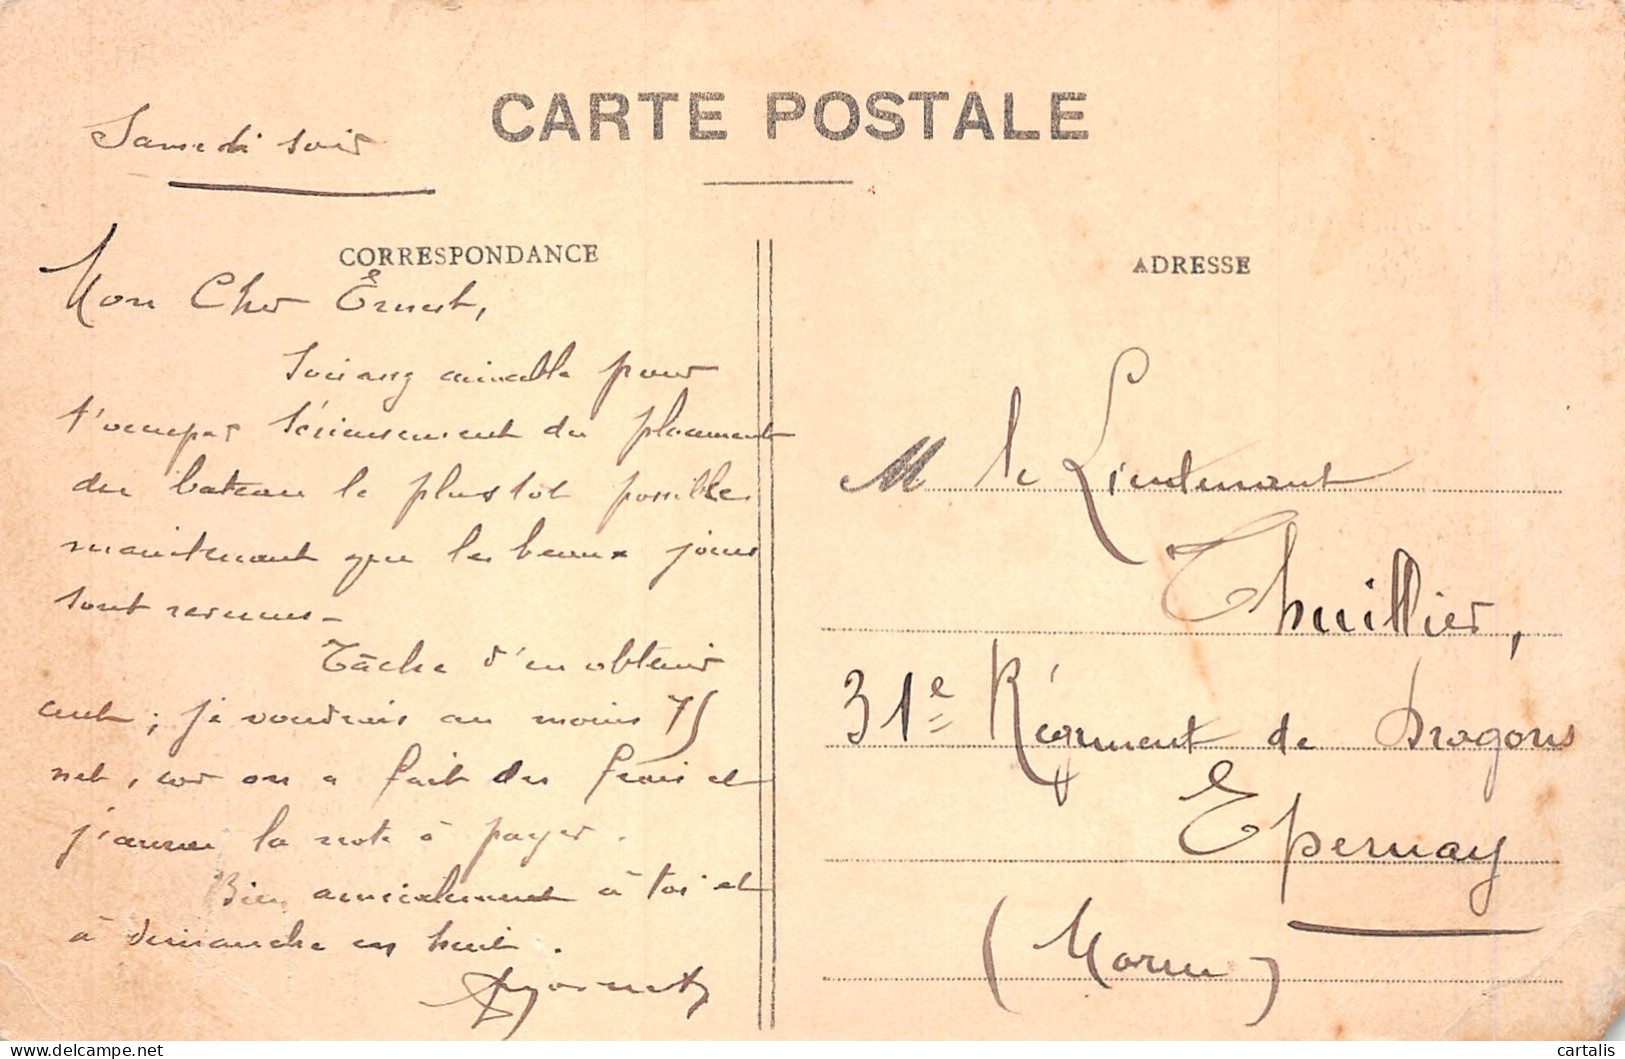 CARTE POSTALE
Samedi soir
CORRESPONDANCE
Mon Cher Ernest,
Sois assez aimable pour
t'occuper sérieusement du placement
du bateau le plus tôt possible
maintenant que les beaux jours
sont revenus _
Tâche d'en obtenir
cent ; je voudrais au moins 75
net, car on a fait des frais et
j'aurai la note à payer.
Bien amicalement à toi et
à dimanche en huit.
ADRESSE
M le Lieutenant
Thuillier,
31e Régiment de Dragons
Epernay
(Marne)
cartalis